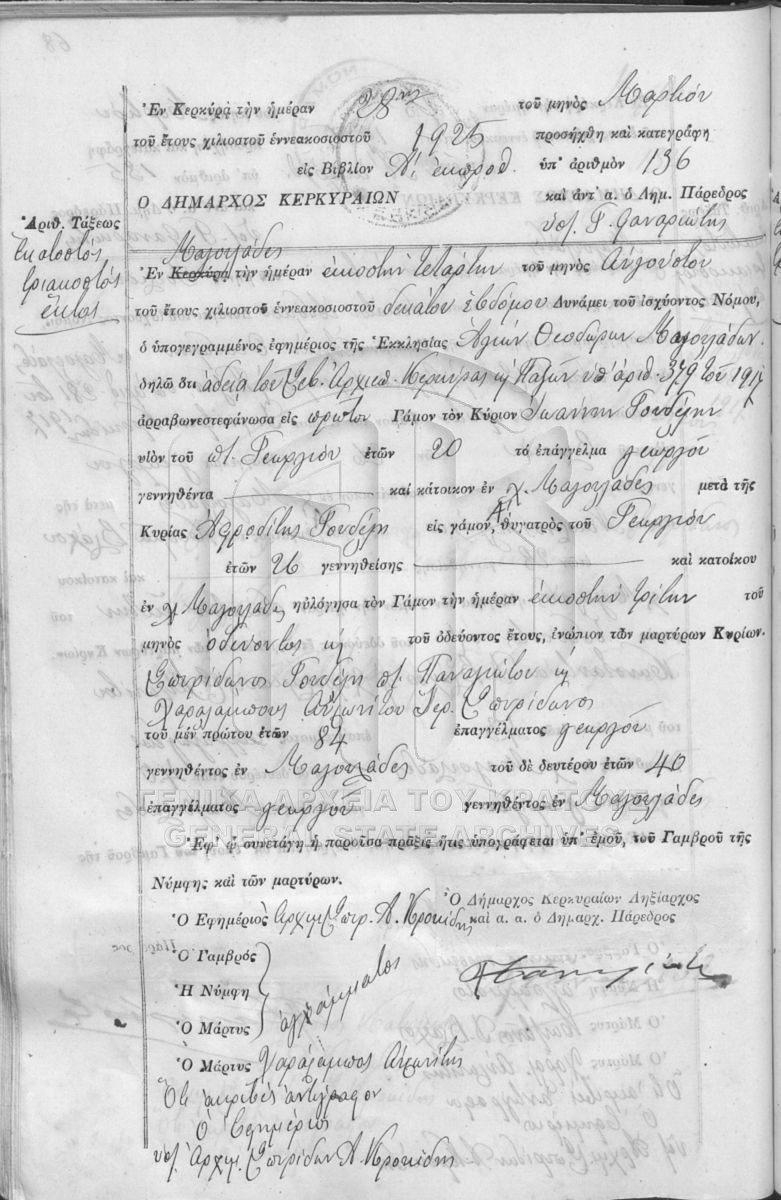 Ἐν Κερκύρᾳ τὴν ἡμέραν 28ην τοῦ μηνὸς Μαρτίου
τοῦ ἔτους χιλιοστοῦ ἐννεακοσιοστοῦ 1925 προσήχθη καὶ κατεγράφη
εἰς Βιβλίον Α! ἐκπροθ. ὑπ' ἀριθμὸν 136
Ο ΔΗΜΑΡΧΟΣ ΚΕΡΚΥΡΑΙΩΝ καὶ ἀντ' α. ὁ Δημ. Πάρεδρος
Ἀριθ. Τάξεως
Ἑκατοστός
τριακοστός
ἕκτος
Μαγουλάδες
Ἐν Κερκύρᾳ τὴν ἡμέραν εἰκοστὴν τετάρτην τοῦ μηνὸς Αὐγούστου
τοῦ ἔτους χιλιοστοῦ ἐννεακοσιοστοῦ δεκάτου ἑβδόμου Δυνάμει τοῦ ἰσχύοντος Νόμου,
ὁ ὑπογεγραμμένος ἐφημέριος τῆς Ἐκκλησίας Ἁγίων Θεοδώρων Μαγουλάδων
δηλῶ ὅτι ἀδείᾳ τοῦ Σεβ. Ἀρχιεπ. Κερκύρας κ Παξῶν ὑπ' ἀριθ. 379 τοῦ 1917
ἀρραβωνεστεφάνωσα εἰς πρῶτον Γάμον τὸν Κύριον Ἰωάννην Γουδέλην
υἱὸν τοῦ π. Γεωργίου ἐτῶν 20 τὸ ἐπάγγελμα γεωργόν
γεννηθέντα καὶ κάτοικον ἐν χ. Μαγουλάδες μετὰ τῆς
Κυρίας Ἀφροδίτης Γουδέλη εἰς Α. γάμον, θυγατρὸς τοῦ Γεωργίου
ἐτῶν 26 γεννηθείσης καὶ κατοίκου
ἐν χ. Μαγουλάδες ηὐλόγησα τὸν Γάμον τὴν ἡμέραν εἰκοστὴν τρίτην τοῦ
μηνὸς ὁδεύοντος κ τοῦ ὁδεύοντος ἔτους, ἐνώπιον τῶν μαρτύρων Κυρίων.
Σπυρίδωνος Γουδέλη π. Παναγιώτου κ
Χαραλάμπους Αὐλωνίτου Ἱερ. Σπυρίδωνος
τοῦ μὲν πρώτου ἐτῶν 84 ἐπαγγέλματος γεωργοῦ
γεννηθέντος ἐν Μαγουλάδες τοῦ δὲ δευτέρου ἐτῶν 40
ἐπαγγέλματος γεωργοῦ γεννηθέντος ἐν Μαγουλάδες
ΓΕΝΙΚΑ ΑΡΧΕΙΑ ΤΟΥ ΚΡΑΤΟΥΣ
GENERAL STATE ARCHIVES
Ἐφ' ᾧ συνετάγη ἡ παροῦσα πρᾶξις ἥτις ὑπογράφεται ὑπ' ἐμοῦ, τοῦ Γαμβροῦ τῆς
Νύμφης καὶ τῶν μαρτύρων.
Ὁ Δήμαρχος Κερκυραίων Ληξίαρχος
Ὁ Ἐφημέριος Ἀρχιμ. Σπυρ. Α. Κροκίδης καὶ α. α. ὁ Δημαρχ. Πάρεδρος
Ὁ Γαμβρὸς
Ἡ Νύμφη ἀγράμματος
Ὁ Μάρτυς
Ὁ Μάρτυς Χαράλαμπος Αὐλωνίτης
Ὅτι ἀκριβὲς ἀντίγραφον
Ὁ Ἐφημέριος
ὑπ. Ἀρχιμ. Σπυρίδων Α. Κροκίδης